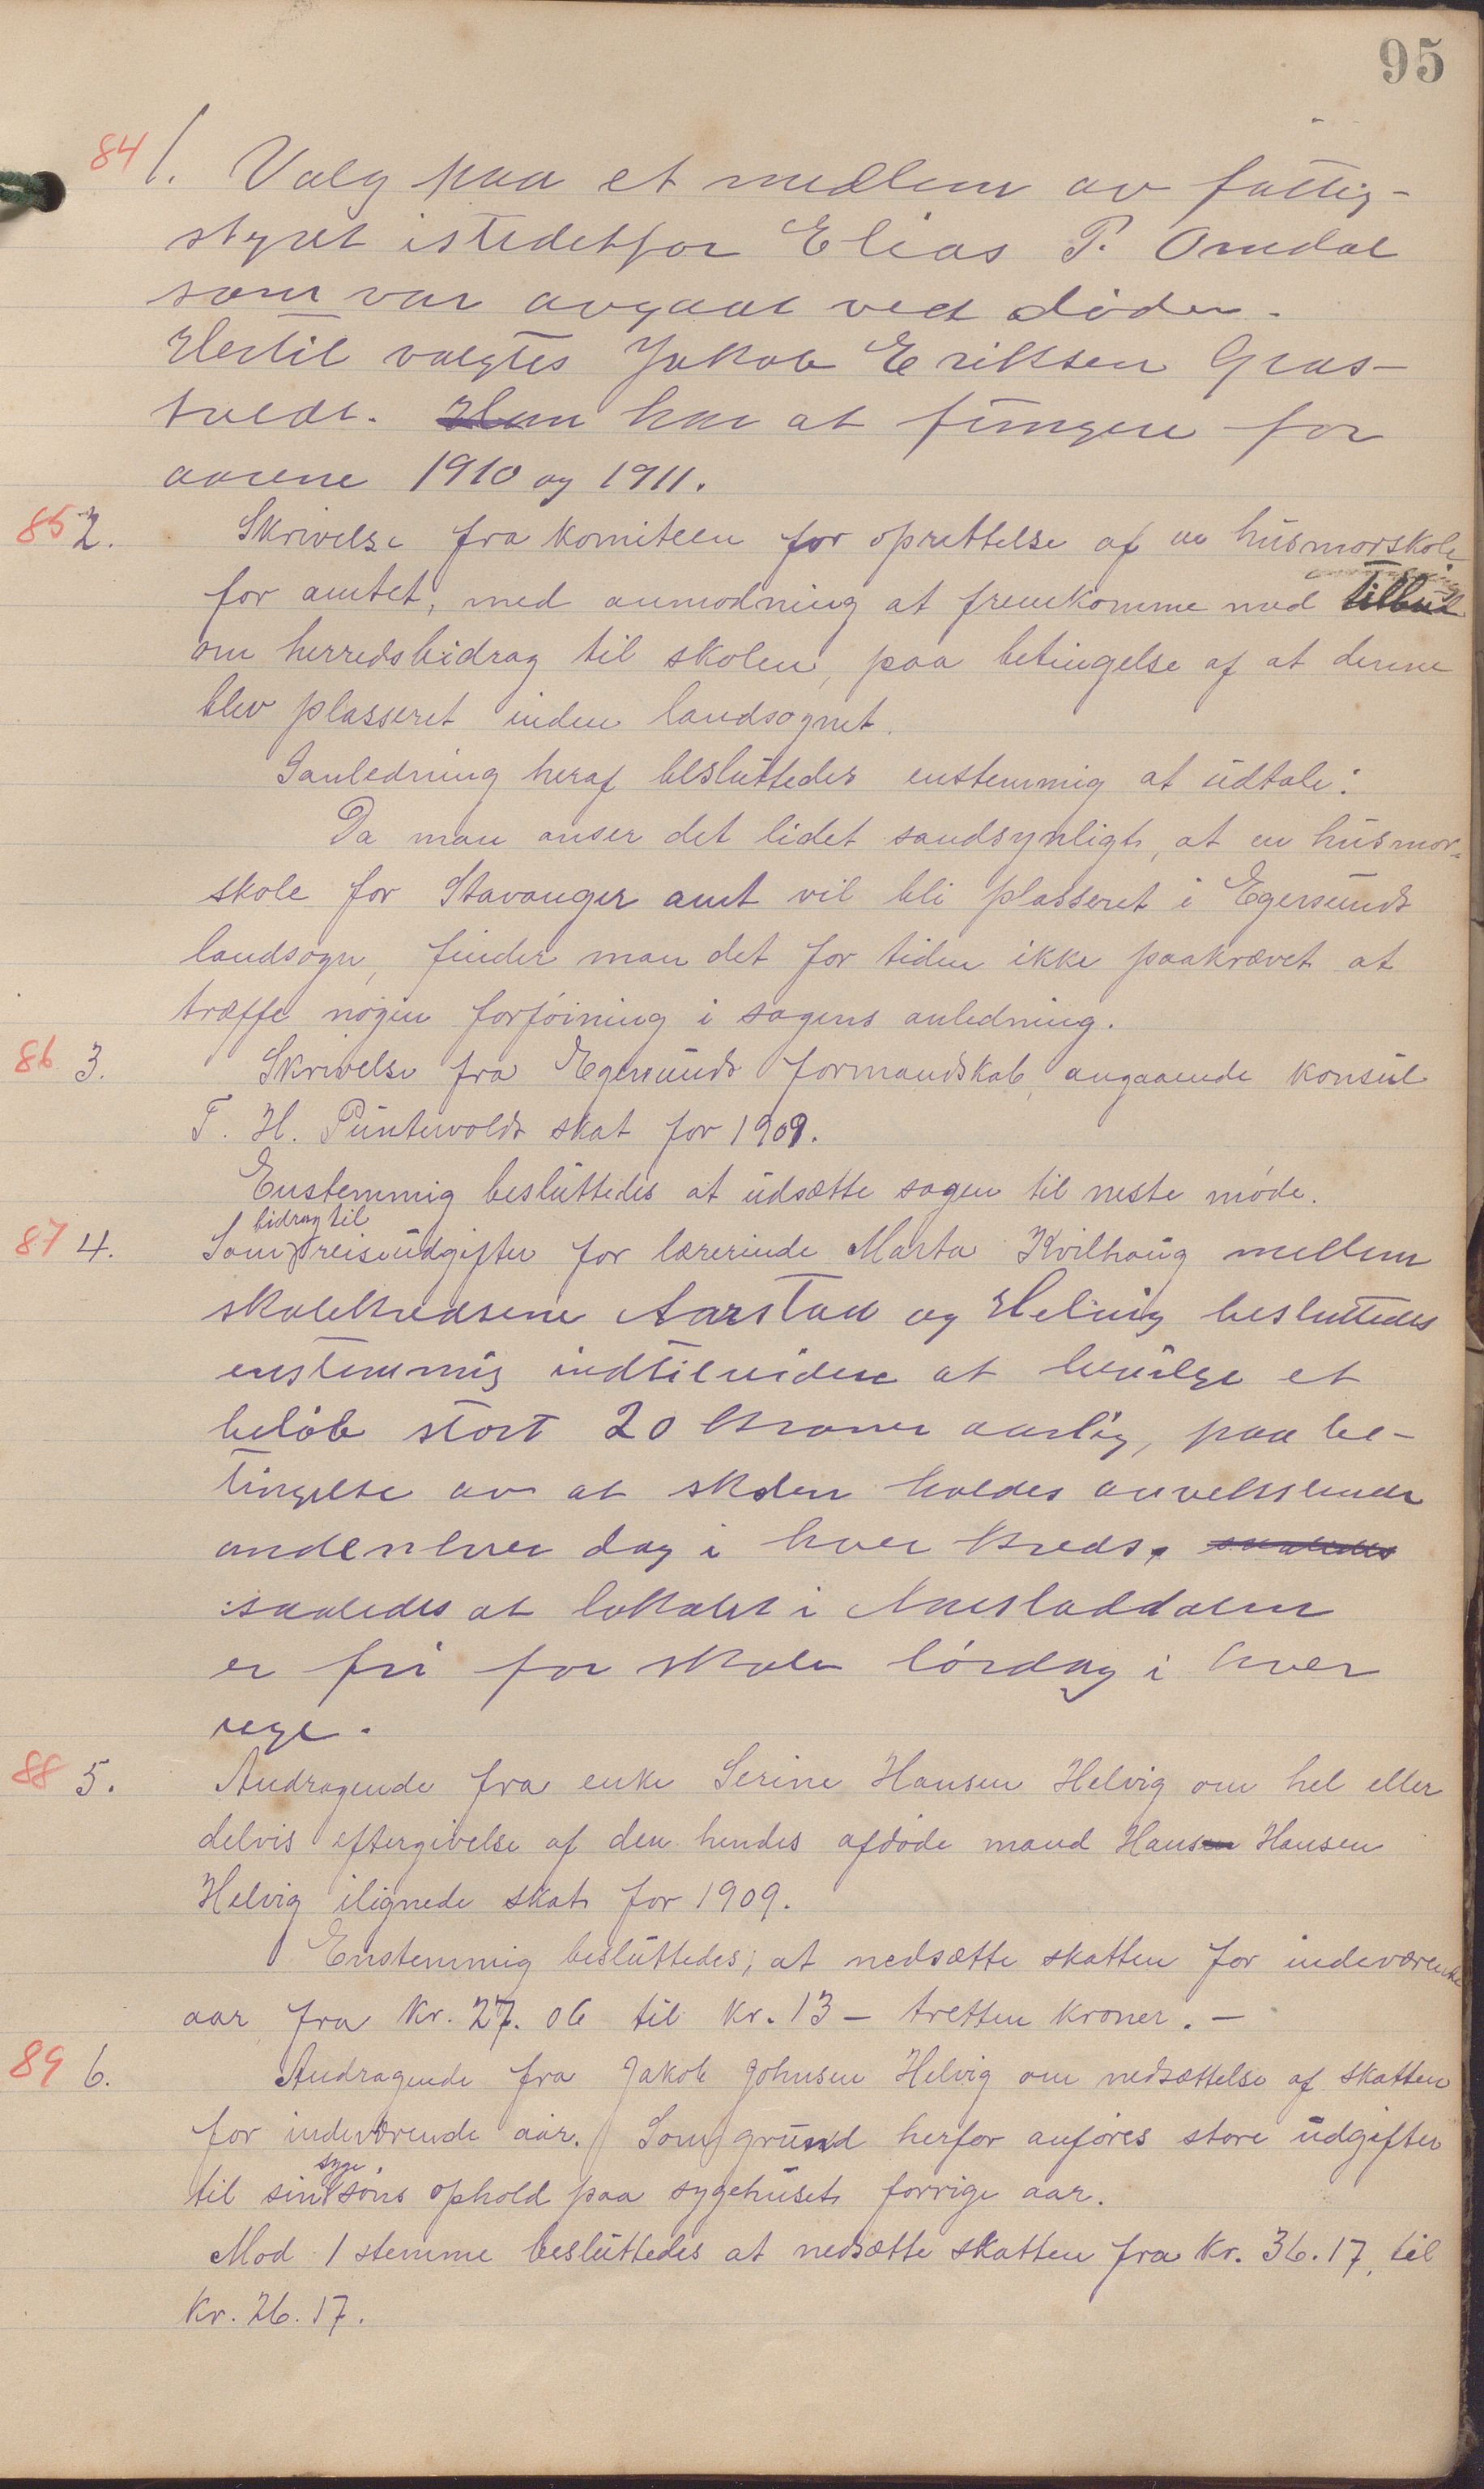 95
84 1. Valg paa et medlem av fattig-
styret istedetfor Elias P. Omdal
som var avgaat ved døden.
Hertil valgtes Jakob Eriksen Gras-
tvedt. Han har at fungere for
aarene 1910 og 1911.
85 2. Skrivelse fra komiteen for oprettelse af en husmorskole
for amtet, med anmodning at fremkomme med tilbud
om herredsbidrag til skolen, paa betingelse af at denne
blev plasseret inden landsognet.
I anledning heraf besluttedes enstemmig at udtale:
Da man anser det lidet sandsynligt, at en husmor-
skole for Stavanger amt vil bli plasseret i Egersunds
landsogn, finder man det for tiden ikke paakrævet at
træffe nogen forføining i sagens anledning.
86 3. Skrivelse fra Egersunds formandskab, angaaende konsul
T. H. Puntervolds skat for 1909.
Enstemmig besluttedes at udsætte sagen til neste møde.
bidrag til
87 4. Som reiseudgifter for lærerinde Marta Kvilhaug mellem
skolekredsene Aarstad og Helvig besluttedes
enstemmig indtilvidere at bevilge et
beløb stort 20 kroner aarlig, paa be-
tingelse av at skolen holdes anvekslende
andenhver dag i hver kreds, saaledes
saaledes at lokalet i Aarstaddalen
er fri for skole lørdag i hver
uge.
88 5. Andragende fra enke Serine Hansen Helvig om hel eller
delvis eftergivelse af den hendes afdøde mand Hansen Hansen
Helvig ilignede skat for 1909.
Enstemmig besluttedes, at nedsætte skatten for indeværende
aar fra kr. 27.06 til kr. 13 – tretten kroner. –
89 6. Andragende fra Jakob Johnsen Helvig om nedsættelse af skatten
for indeværende aar. Som grund herfor anføres store udgifter
syge
til sin søns ophold paa sygehuset forrige aar.
Mod 1 stemme besluttedes at nedsætte skatten fra kr. 36.17, til
kr. 26.17.